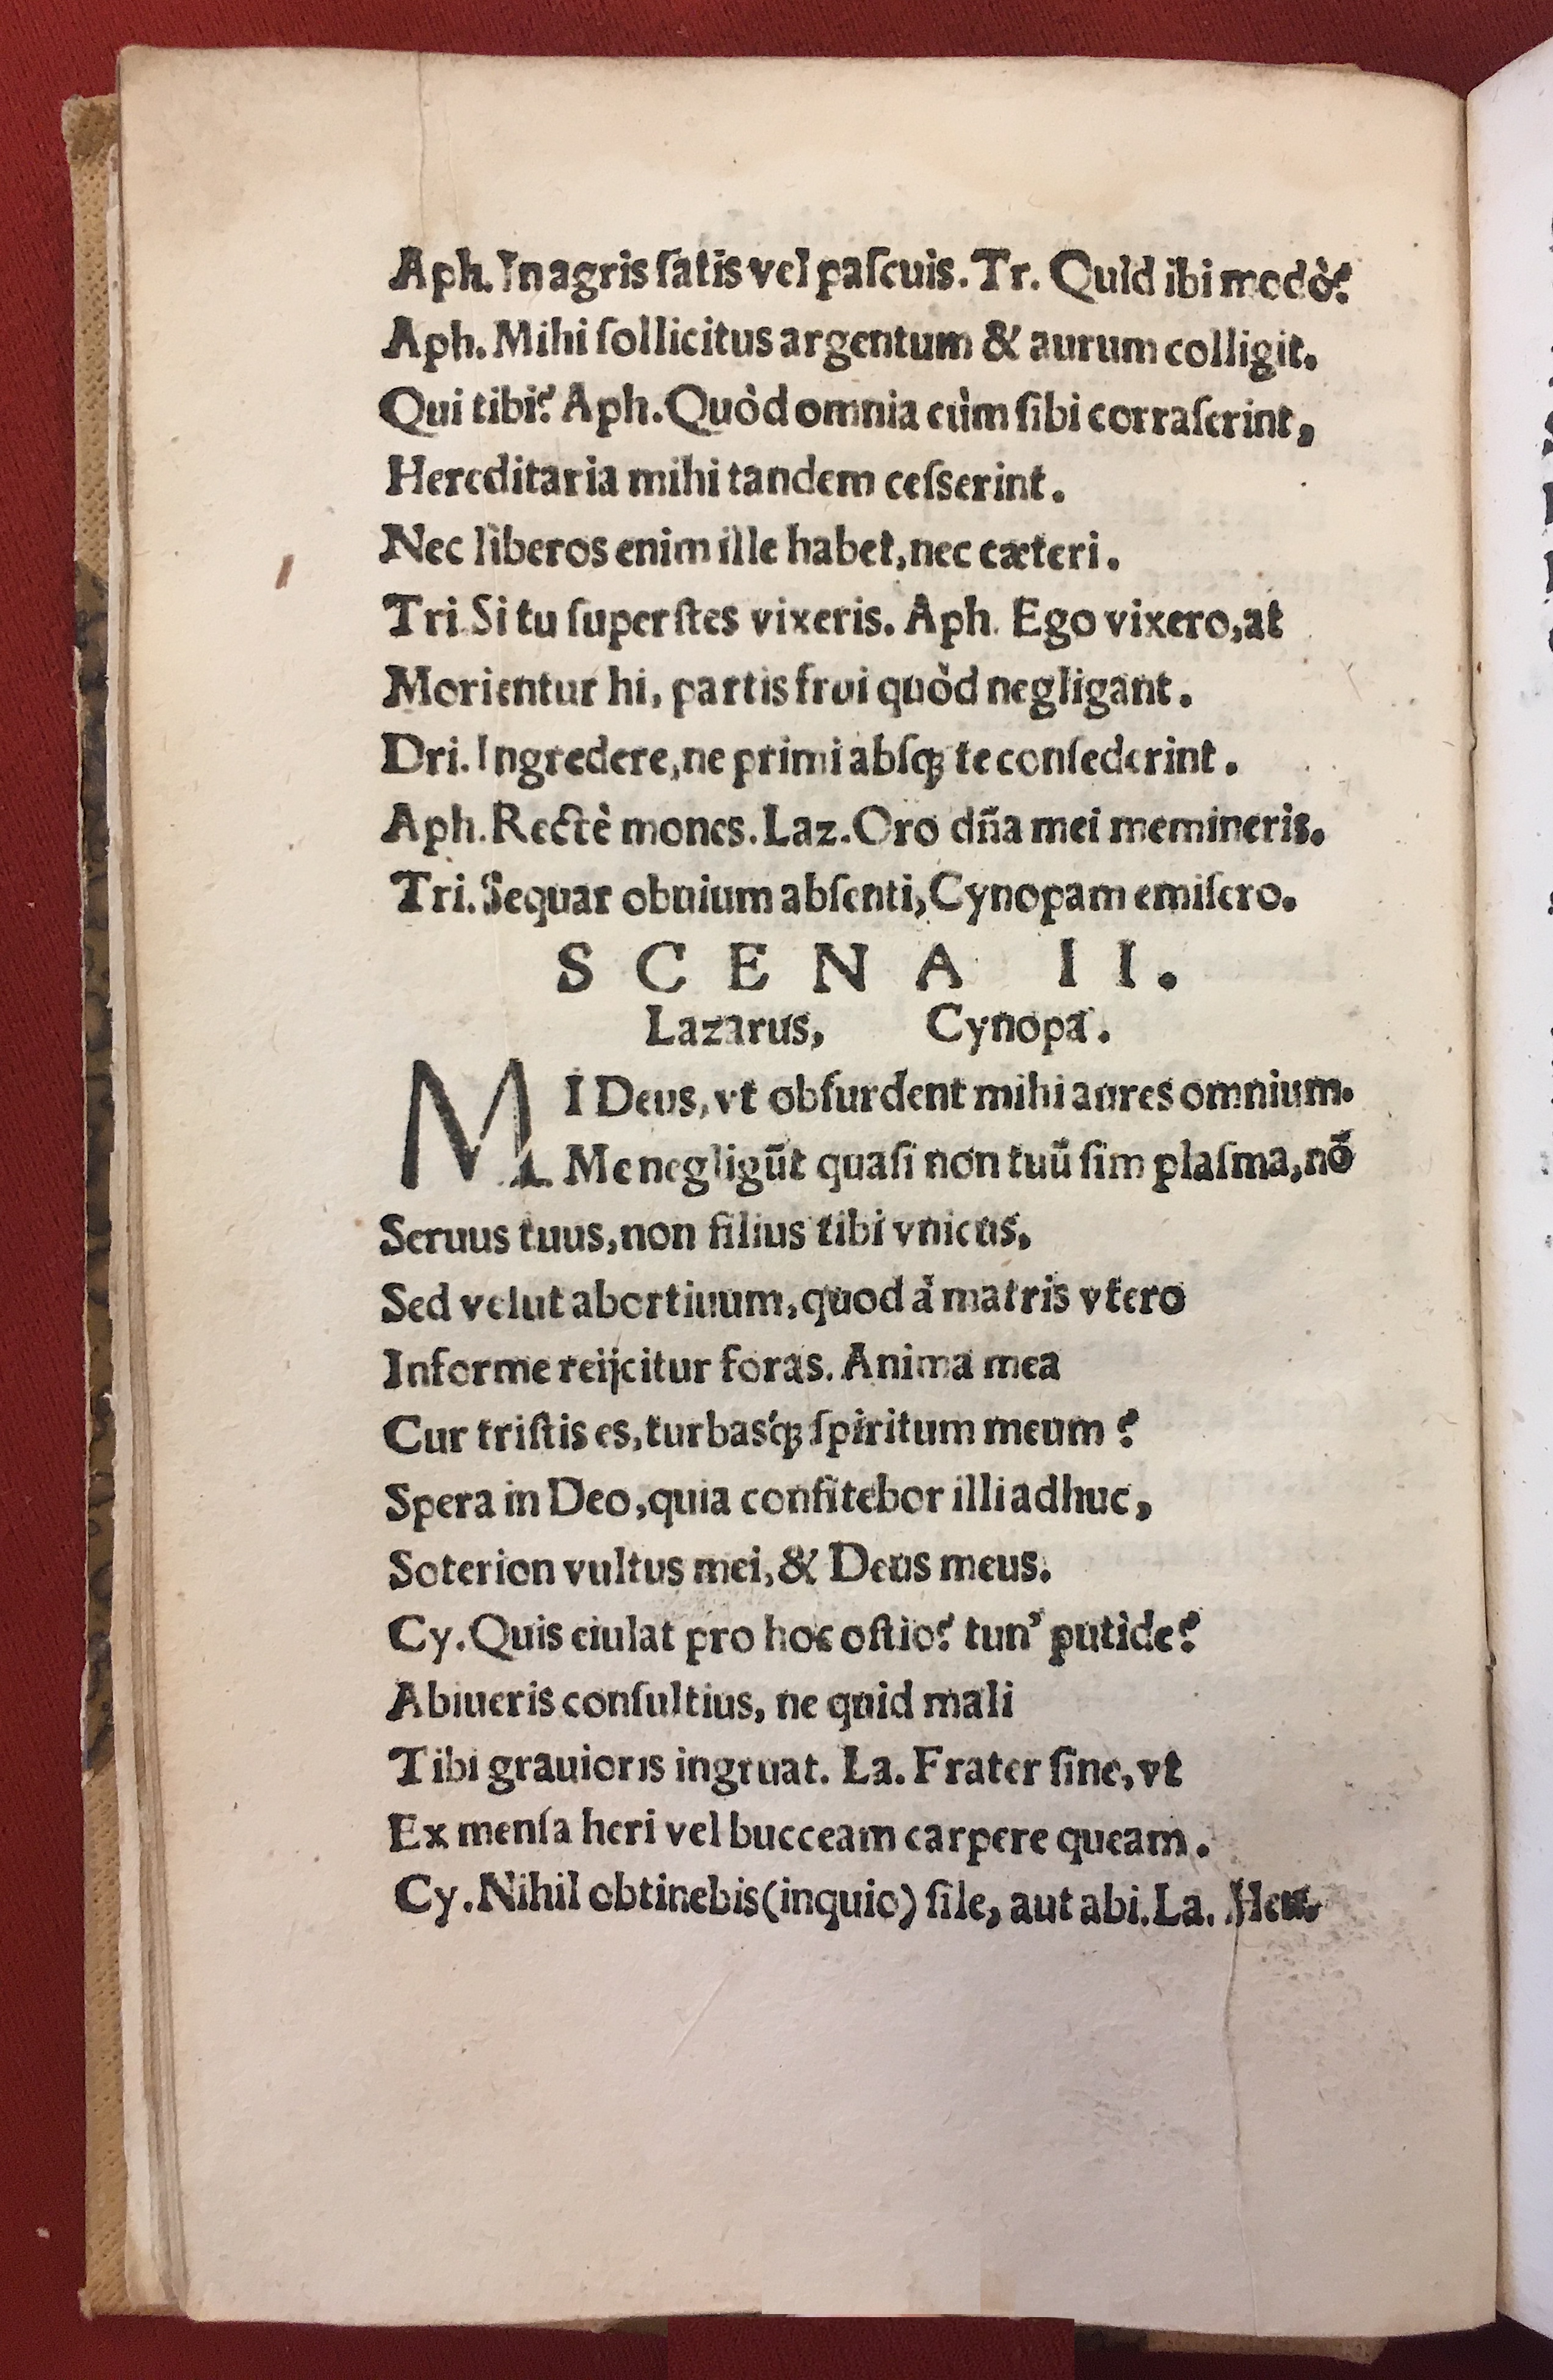 Aph. In agris ſatis vel paſcuis. Tr. Quid ibi modò?
Aph. Mihi ſollicitus argentum & aurum colligit.
Qui tibi? Aph. Quòd omnia cùm ſibi corraſerint,
Hereditaria mihi tandem ceſserint.
Nec liberos enim ille habet, nec cæteri.
Tri. Si tu ſuperſtes vixeris. Aph. Ego vixero, at
Morientur hi, partis frui quòd negligant.
Dri. Ingredere, ne primi abſqꝫ te conſederint.
Aph. Rectè mones. Laz. Oro dña mei memineris.
Tri. Sequar obuium abſenti, Cynopam emiſero.
SCENA II.
Lazarus, Cynopa.
MI Deus, vt obſurdent mihi aures omnium.
Me negligūt quaſi non tuū ſim plaſma, nō
Seruus tuus, non filius tibi vnicus,
Sed velut abortiuum, quod à matris vtero
Informe reijcitur foras. Anima mea
Cur triſtis es, turbas'qꝫ ſpiritum meum?
Spera in Deo, quia confitebor illi adhuc,
Soterion vultus mei, & Deus meus.
Cy. Quis eiulat pro hoc oſtio? tun' putide?
Abiueris conſultius, ne quid mali
Tibi grauioris ingruat. La. Frater ſine, vt
Ex menſa heri vel bucceam carpere queam.
Cy. Nihil obtinebis (inquio) ſile, aut abi. La. Heu.